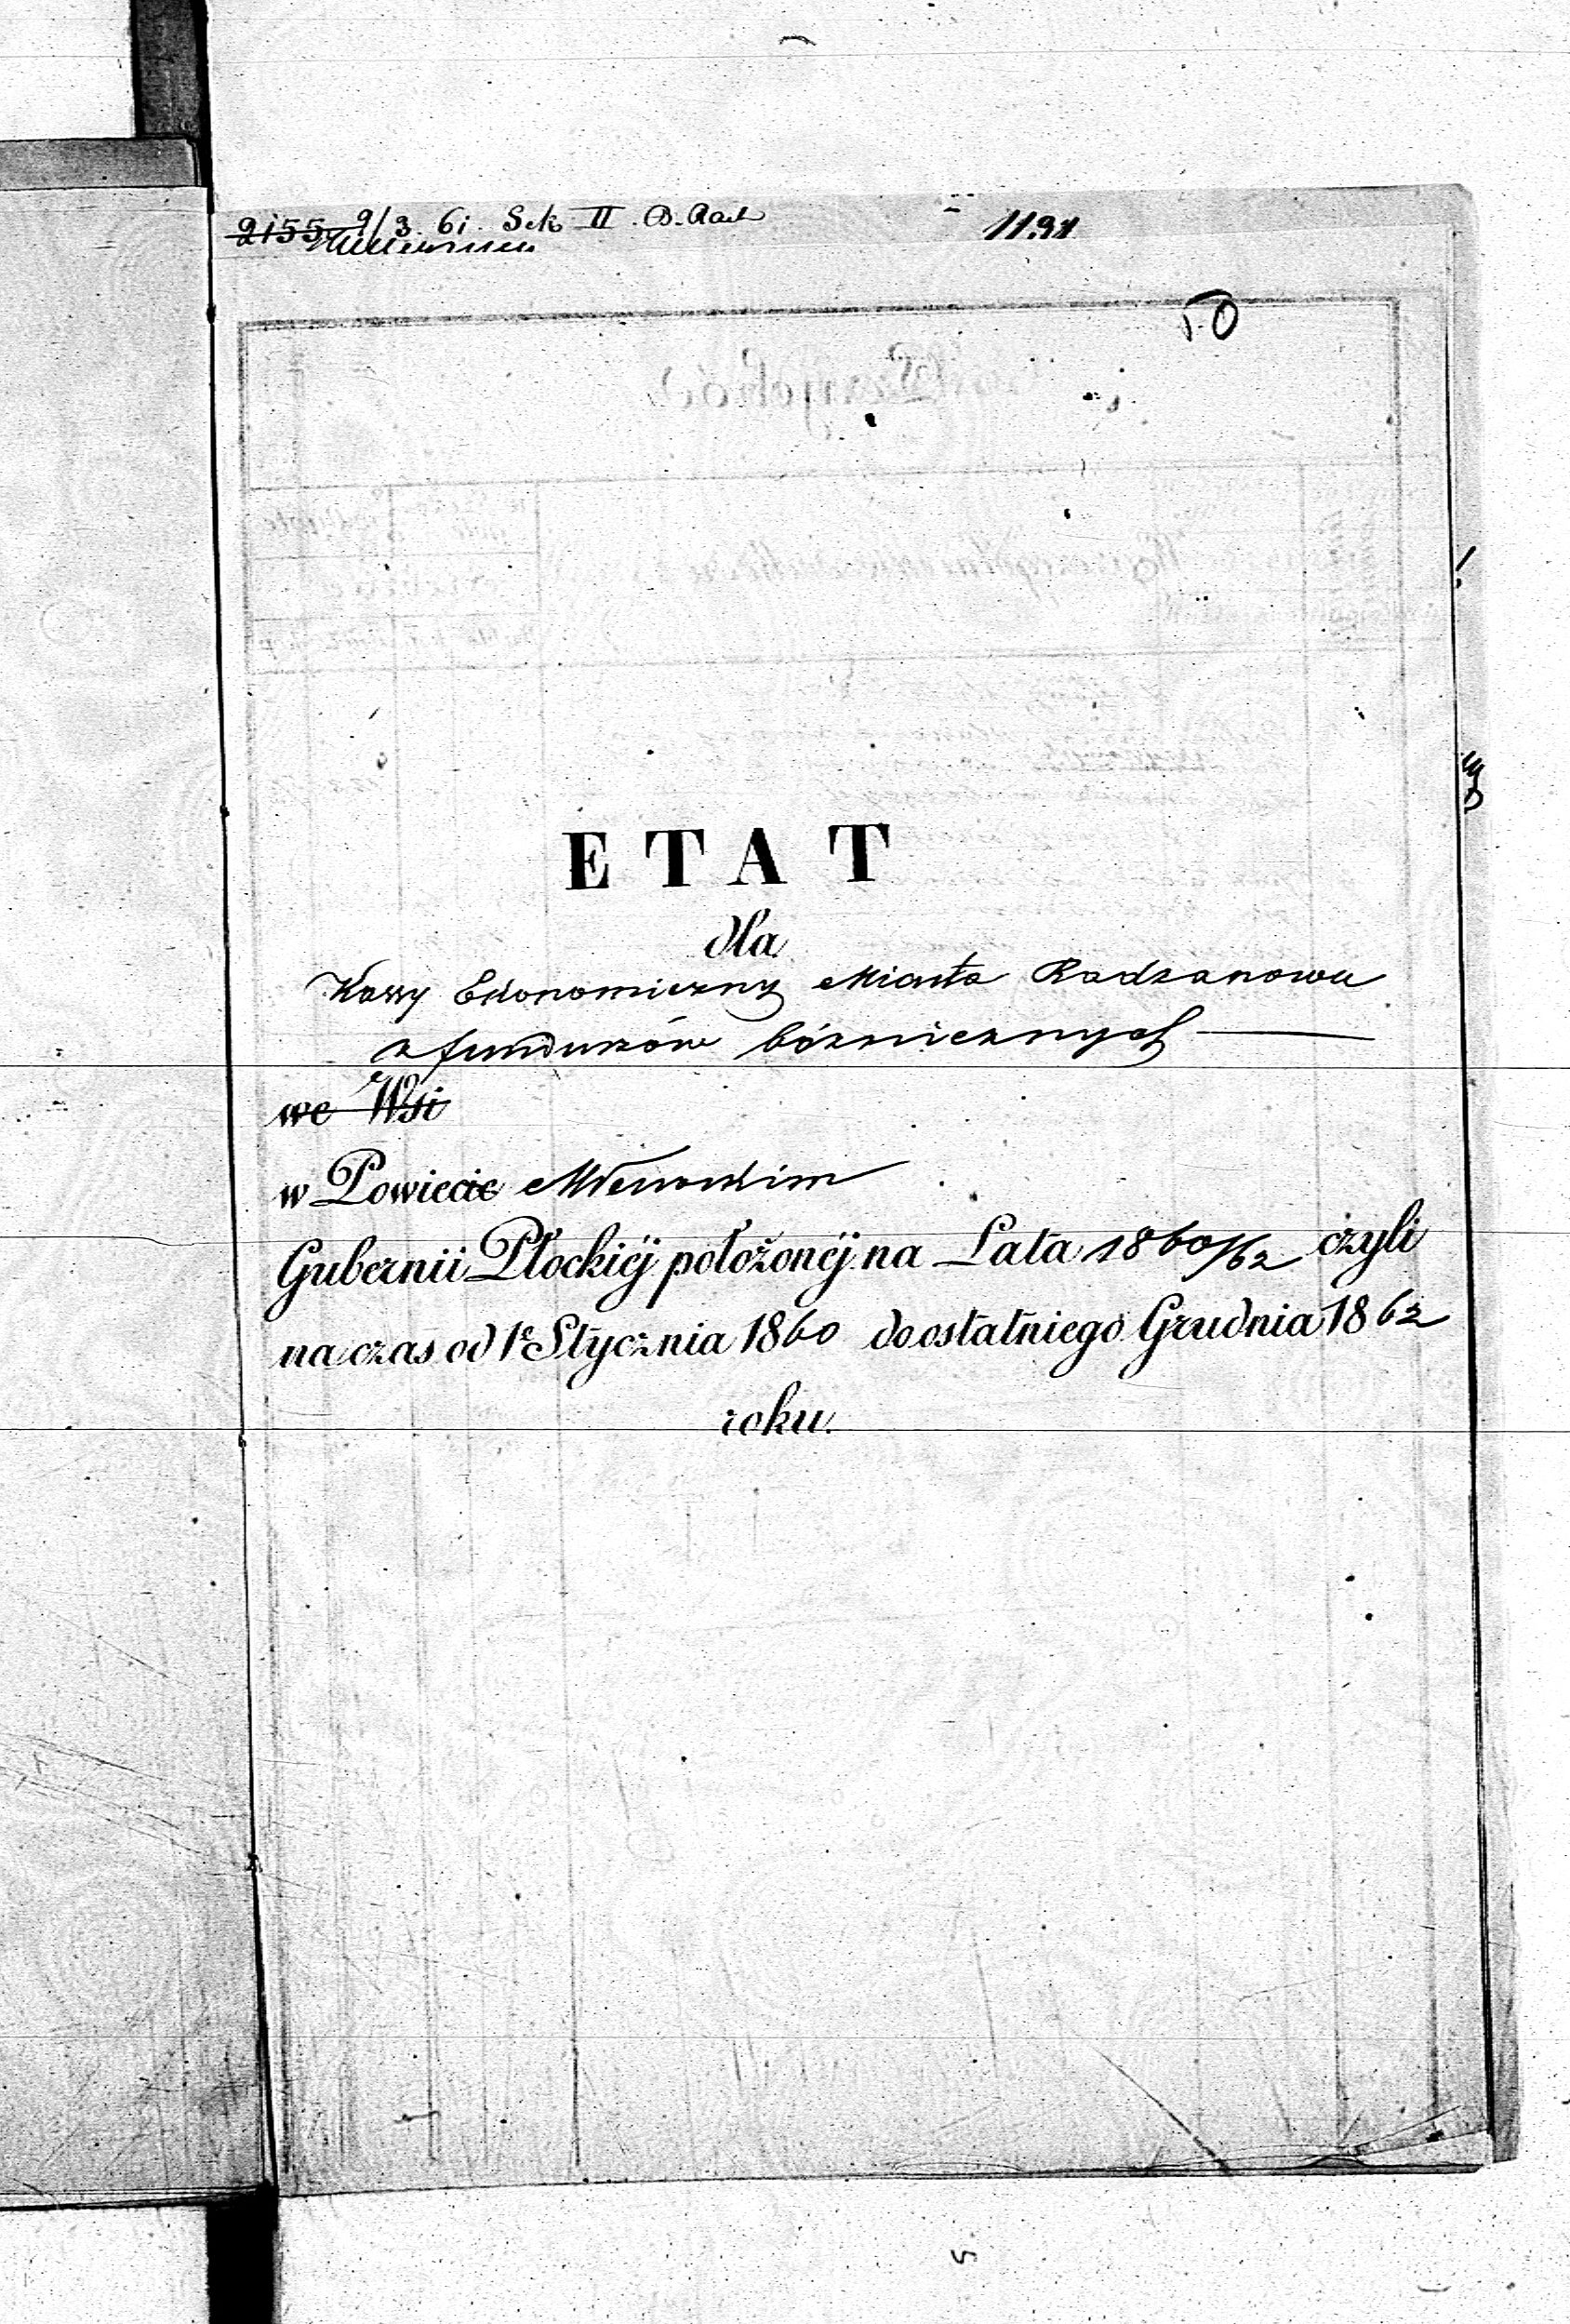 2155 9/3 61. Sek II. B. Rach
1191
50
ETAT
dla
Kassy Ekonomiczny Miasta Radzanowa
z funduszów bóżnicznych
we Wsi
w Powiecie Mławskim
Gubernii Płockiéj położonéj na Lata 1860/62 czyli
na czas od 1º Stycznia 1860 do ostatniego Grudnia 1862
roku.